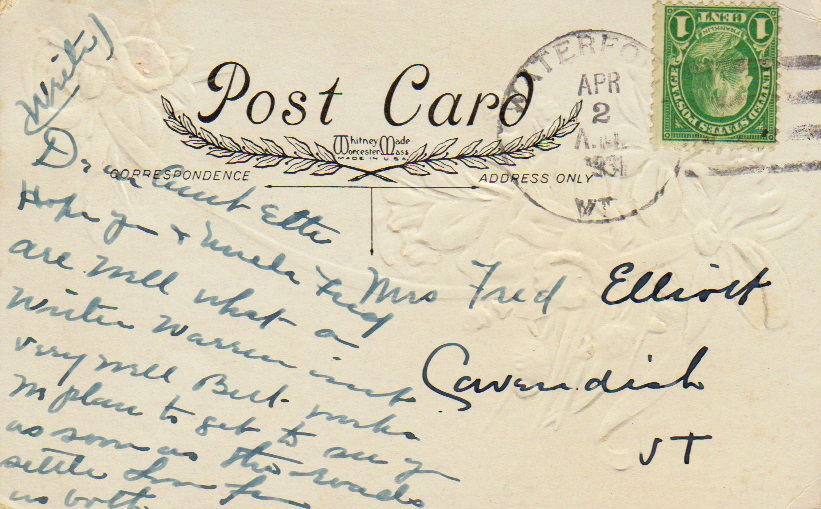 Write)
Post Card
Whitney Made
Worcester, Mass
MADE IN U.S.A.
CORRESPONDENCE
ADDRESS ONLY
WATERFO
APR
2
A.M.
1931
VT.
1 CENT 1
UNITED STATES POSTAGE
Dear Aunt Etta
Hope you & Uncle Fred
are well what a
Winter Warren isnt
very well Bert works
plan to get to see you
as soon as the roads
settle Love from
us both
Mrs Fred Elliott
Cavendish
VT